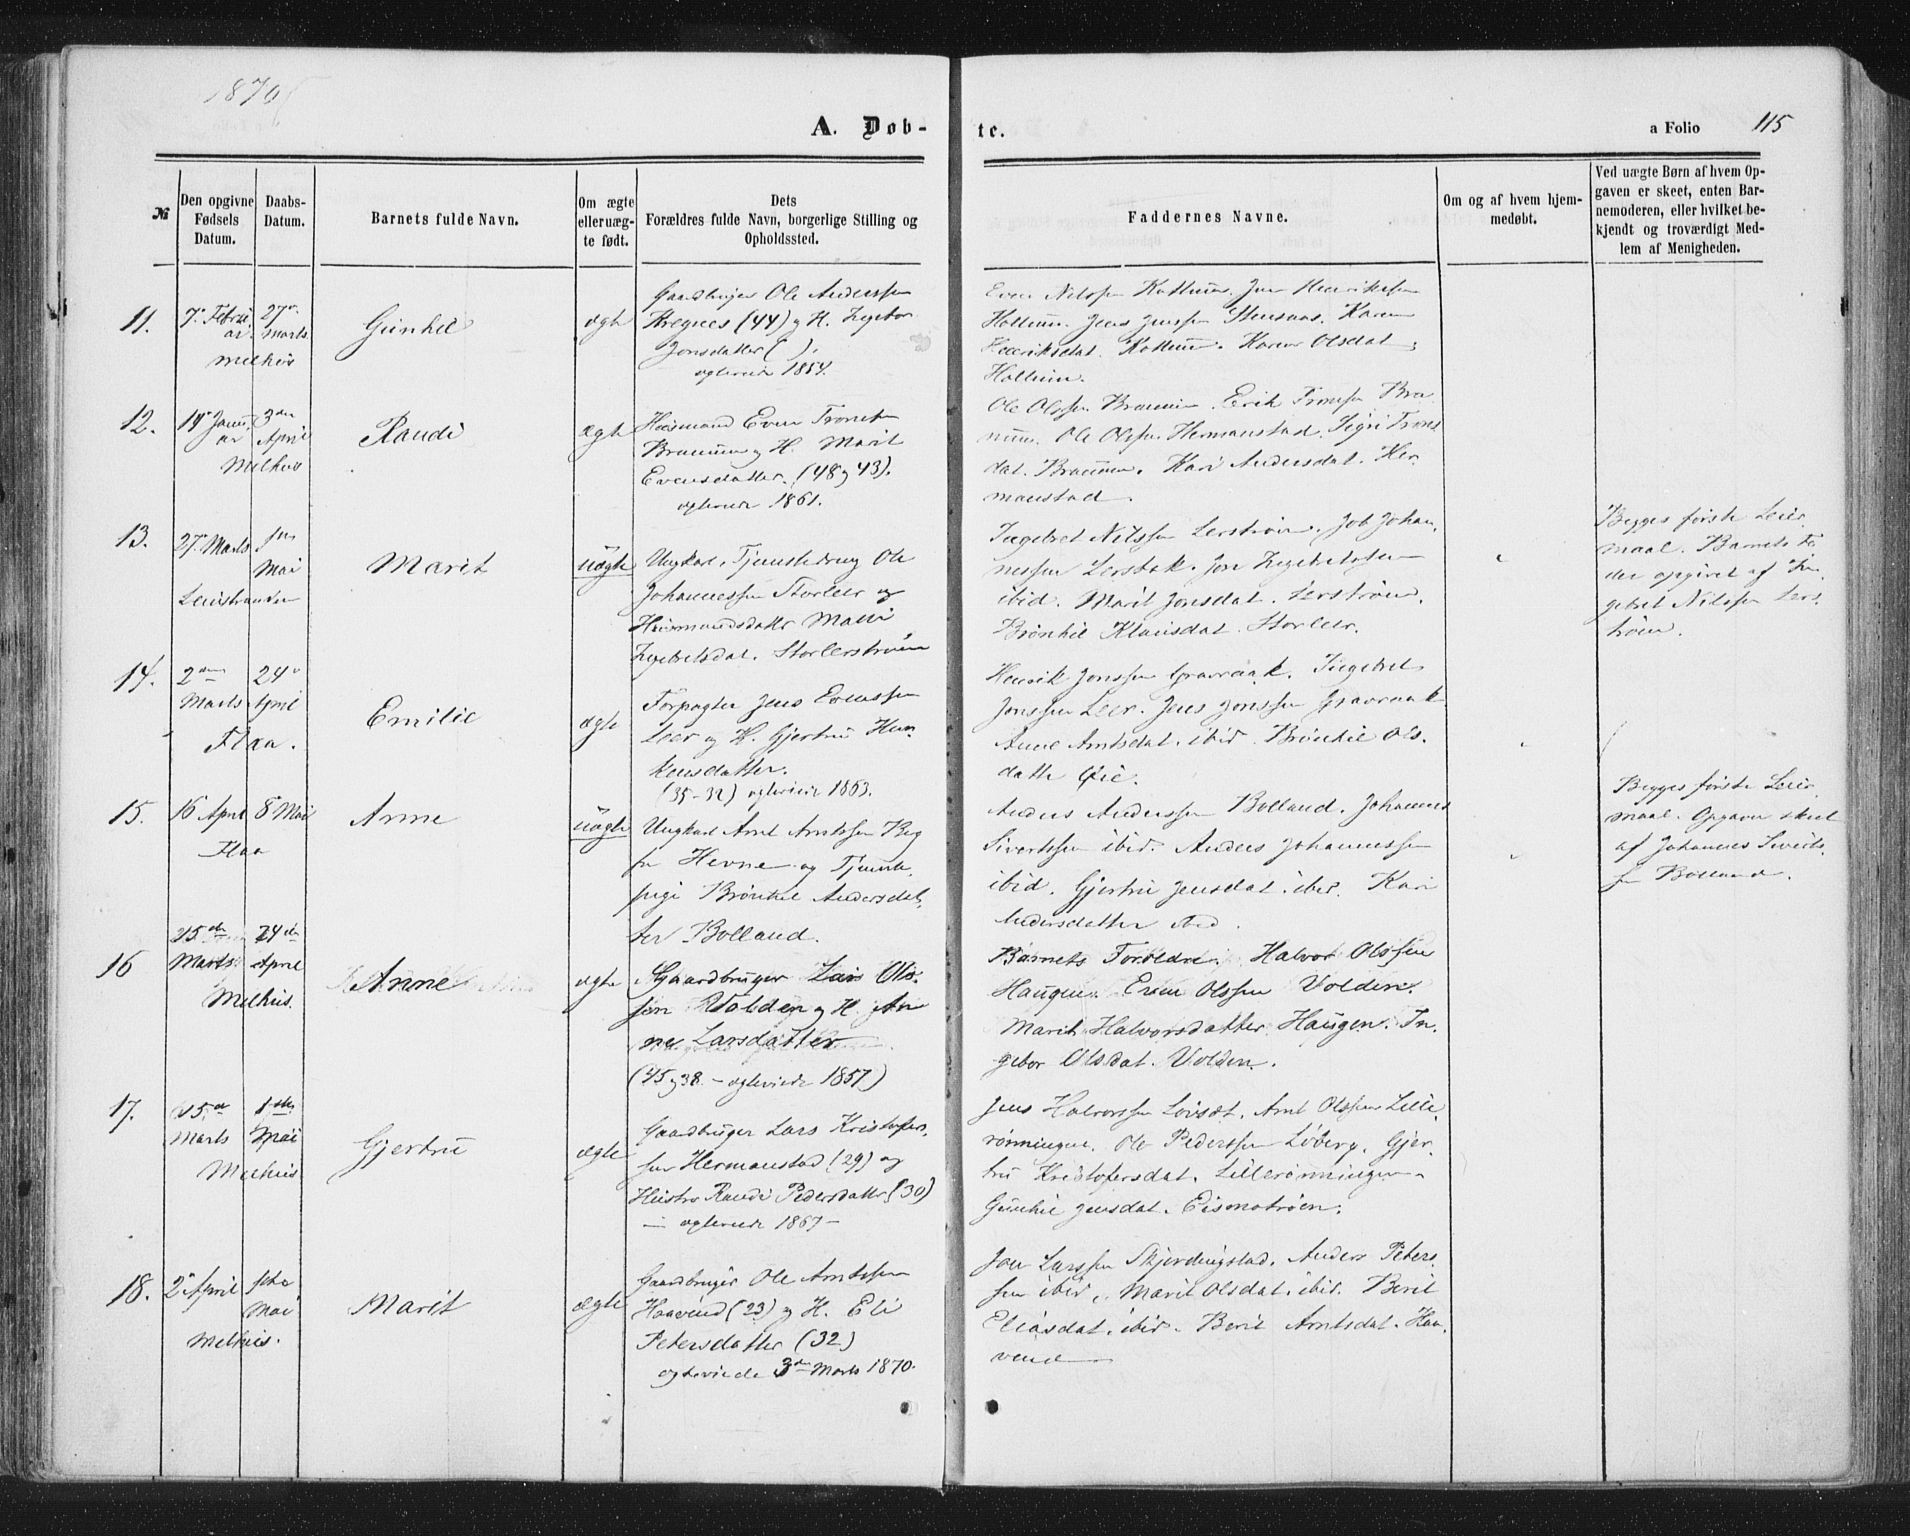 1870
A. Døb-
te.
a Folio 115
№
Den opgivne Fødsels Datum.
Daabs-Datum.
Barnets fulde Navn.
Om ægte eller uægte født.
Dets Forældres fulde Navn, borgerlige Stilling og Opholdssted.
Faddernes Navne.
Om og af hvem hjemmedøbt.
Ved uægte Børn af hvem Opgaven er skeet, enten Barnemoderen, eller hvilket bekjendt og troværdigt Medlem af Menigheden.
11.
7. Febru
ar
Melhus
27de
Marts
Gunhil
ægte
Gaardbruger Ole Anderssen
(44) og H. Ingebor
Jonsdatter ( ).
egteviede 1854.
Even Nilssen Kattum. Jon Henrikssen
Jens Jenssen Stensaas. Karen
Henriksdat. Kattum. Karen Olsdat.
12.
14. Janu
ar
Melhus
3die
April
Randi
ægte
Huusmand Even Tronsen
Braaum og H. Marit
Evensdatter. (48 og 43).
egteviede 1861.
Ole Olssen Braaum. Erik Tronsen Bra
aum. Ole Olssen Hermanstad. Sigri Trons
dat. Braaum. Kari Andersdat. Her
manstad.
13.
27. Marts
Leinstranden
Mai
Marit
uægte
Ungkarl, Tjenestedreng Ole
Johannessen Storler og
Huusmandsdatter Mali
Ingebretsdat. Storlerstrøen
Ingebret Nilssen Lerstrøen. Job Johan
nessen Jon Ingebretssen
ibid. Marit Jonsdat. Lerstrøen.
Brønhil Klausdat. Storler.
Begges første Leier
maal. Barnets Fa
der opgivet af In
gebret Nilssen Lers
trøen.
14.
2den
Marts
Flaa.
24de
April
Emilie
ægte
Forpagter Jens Evenssen
Leer og H. Gjertru Haa
kensdatter.
(35-32) egteviede 1863.
Henrik Jonssen Gravraak. Ingebret
Jonssen Leer. Jens Jonssen Gravraak
Anne Arntsdat. ibid. Brønhil Ols
datter Øie.
15.
16 April
Flaa
8 Mai
Anne
uægte
Ungkarl Arnt Arntssen
fra Hevne og Tjeneste
pige Brønhil Andersdat
ter Bolland.
Anders Anderssen Bolland. Johannes
Sivertssen ibid. Anders Johannessen
ibid. Gjertru Jensdat. ibid. Kari
Andersdatter ibid.
Begges første Leier
maal. Opgaven skeet
af Johannes Siverts
sen Bolland.
16
15de
Marts
Melhus.
24de
April
Anne
ægte
Gaardbruger Lars Ols
sen Volden og H. An
ne Larsdatter
(45 og 38. - egteviede 1857)
Barnets Forældre. Halvor Olssen
Haugen. Even Olssen Volden.
Marit Halvorsdatter Haugen. In
gebor Olsdat. Volden.
17.
15de
Marts
Melhus
1ste
Mai
Gjertru
ægte
Gaardbruger Lars Kristofers
sen Hermanstad (29) og
Hustro Randi Pedersdatter (30)
— egteviede 1867 —
Jens Halvorssen Arnt Olssen Lille
rønningen. Ole Pederssen Løberg. Gjer
tru Kristofersdat. Lillerønningen.
Gunhil Jensdat. Eismotrøen.
18.
2. April
Melhus.
1ste
Mai
Marit
ægte
Gaardbruger Ole Arntssen
Haavend (23) og H. Eli
Petersdatter (32)
egteviede 3die Marts 1870.
Jon Larssen Skjerdingstad. Anders Peters
sen ibid. Marit Olsdat. ibid. Berit
Eliasdat. ibid. Berit Arntsdat. Haa
vend